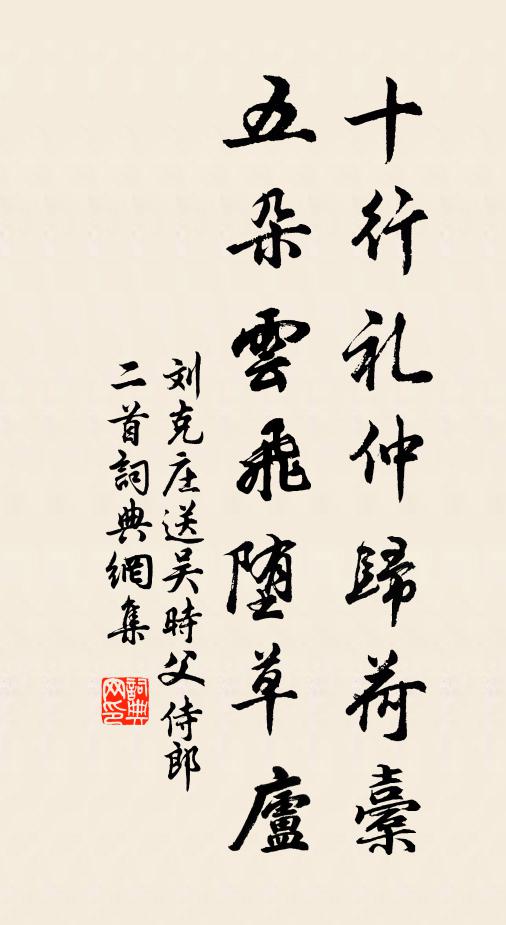 十行礼仲歸荷橐
五朵雲飛堕草廬
刘克庄送吴時父侍郎
二首詞典網集
詞典
网印